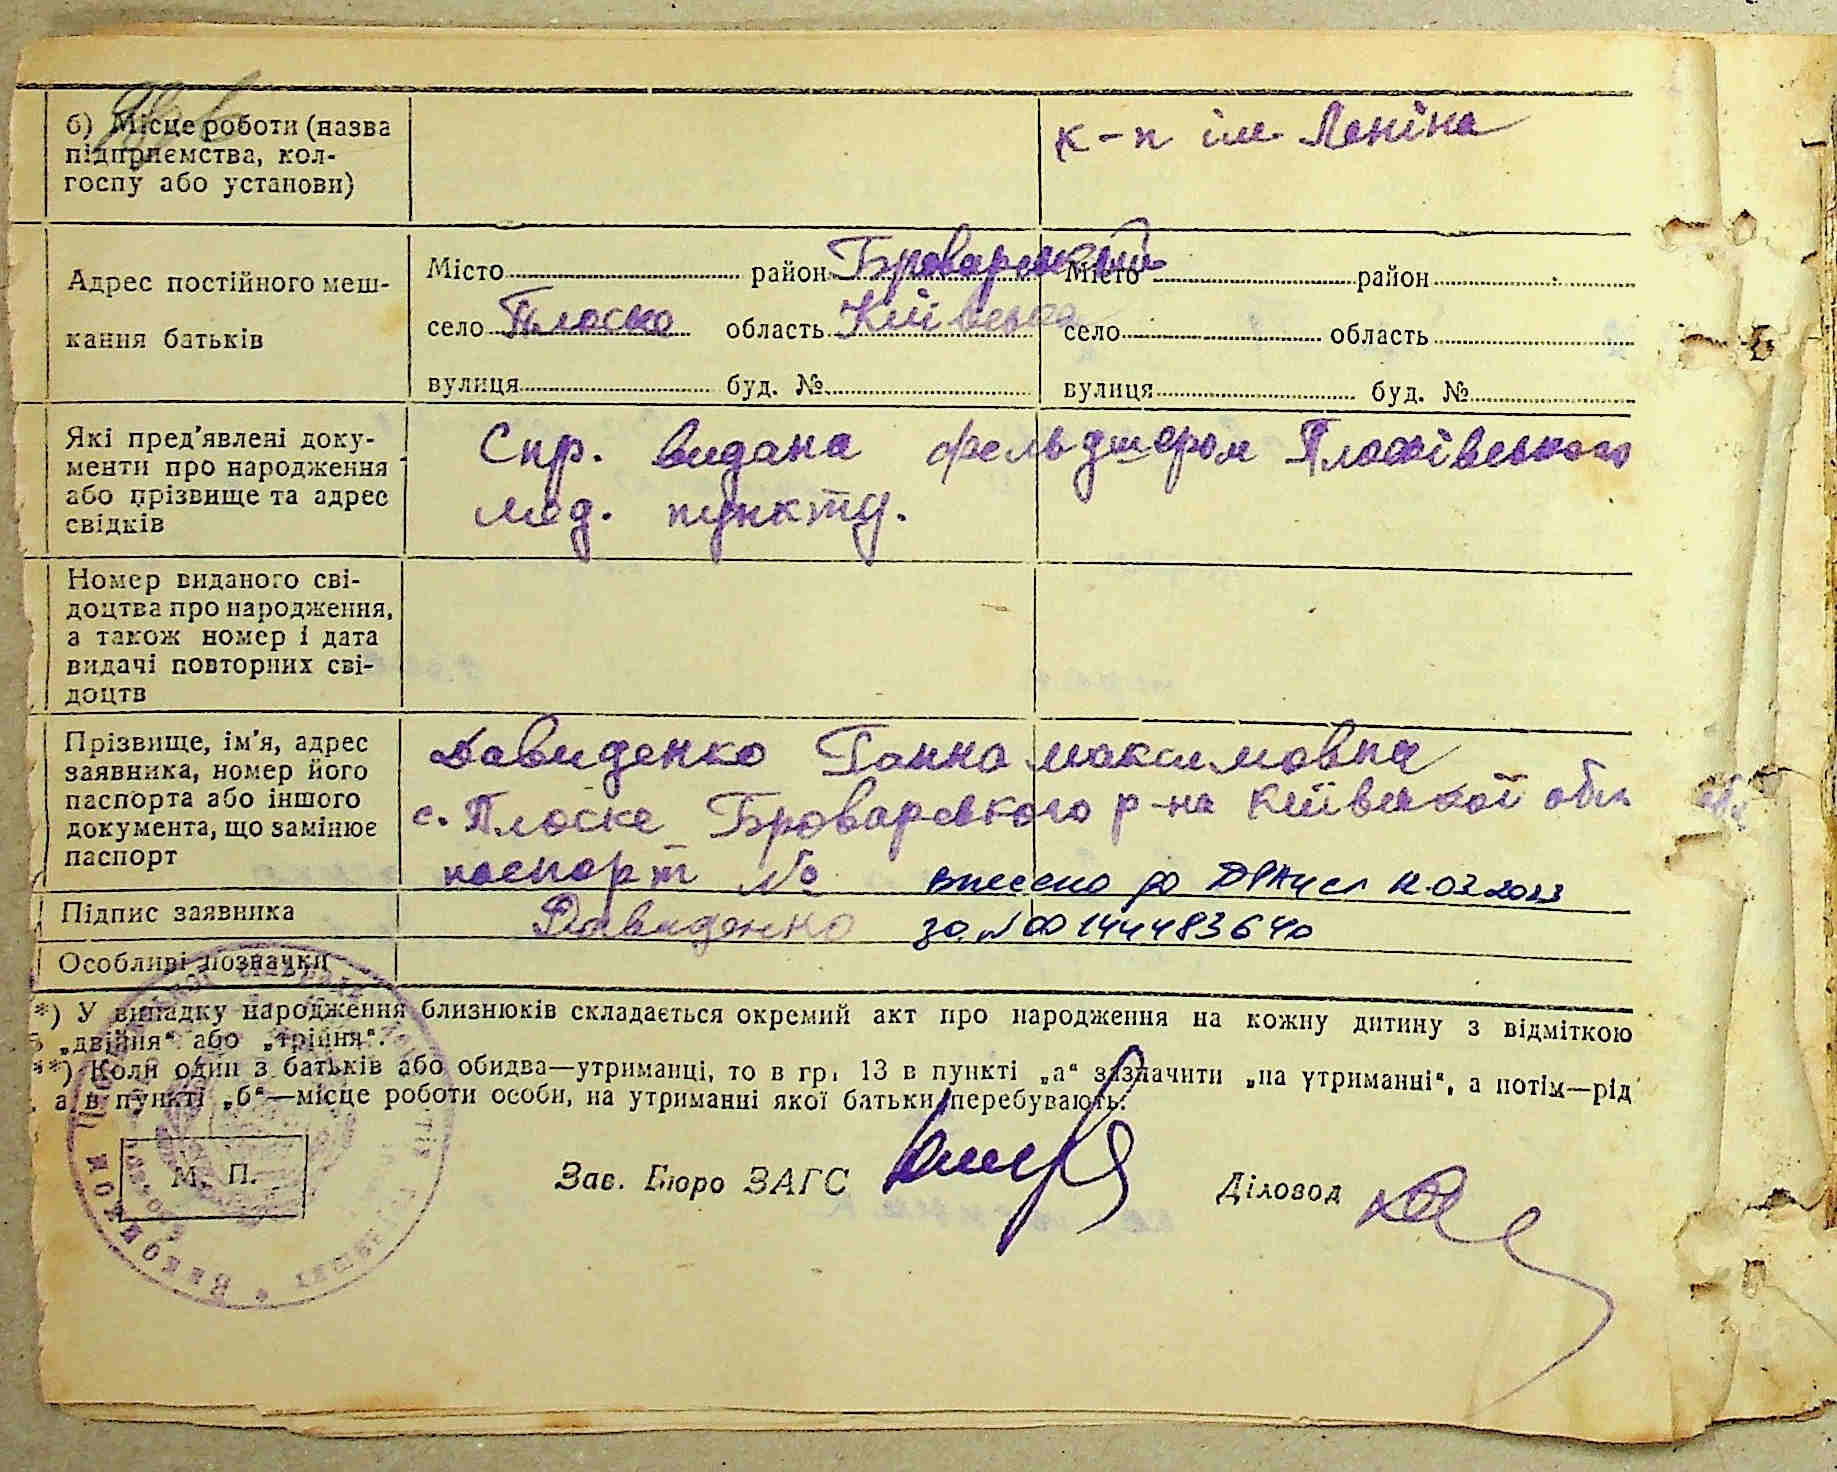 б) Місце роботи (назва
підприємства, кол-
госпу або установи)
к-п ім Леніна
Адрес постійного меш-
кання батьків
Місто район Броварський Місто район
село Плоско область Київська село область
вулиця буд. № вулиця буд. №
Які пред'явлені доку-
менти про народження
або прізвище та адрес
свідків
Спр. видана фельдшером Плосківського
мед. пункту.
Номер виданого сві-
доцтва про народження,
а також номер і дата
видачі повторних сві-
доцтв
Прізвище, ім'я, адрес
заявника, номер його
паспорта або іншого
документа, що замінює
паспорт
Давиденко Ганна максимовна
с. Плоске Броварського р-на Київської обл
паспорт №
внесено до ДРАЦСГ 12.03.2023
Підпис заявника Давиденко
за №00144483640
Особливі позначки
*) У випадку народження близнюків складається окремий акт про народження на кожну дитину з відміткою
„двійня“ або „трійня“.
**) Коли один з батьків або обидва—утриманці, то в гр. 13 в пункті „а“ зазначити „на утриманні“, а потім—рід
а в пункті „б“—місце роботи особи, на утриманні якої батьки перебувають.
М. П.
Зав. Бюро ЗАГС Діловод